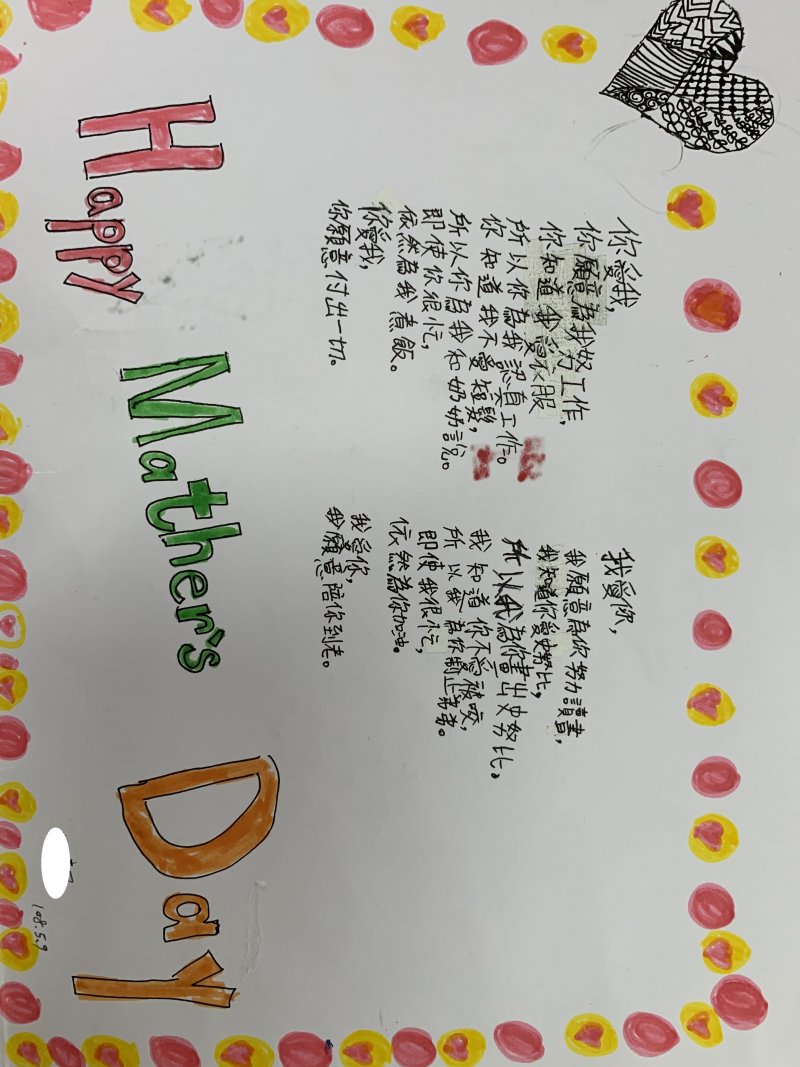 你愛我,
你願意為我努力工作,
你知道我愛衣服
所以你為我認真工作。
你知道我不愛短髮,
所以你為我和奶奶說。
即使你很忙,
依然為我煮飯。
你愛我,
你願意付出一切。
我愛你,
我願意為你努力讀書,
我知道你愛史努比,
所以我為你畫出史努比,
我知道你不愛被咬,
所以我為你制止弟弟。
即使我很忙,
依然為你加油。
我愛你,
我願意陪你到老。
Happy Mather's Day
108.5.9